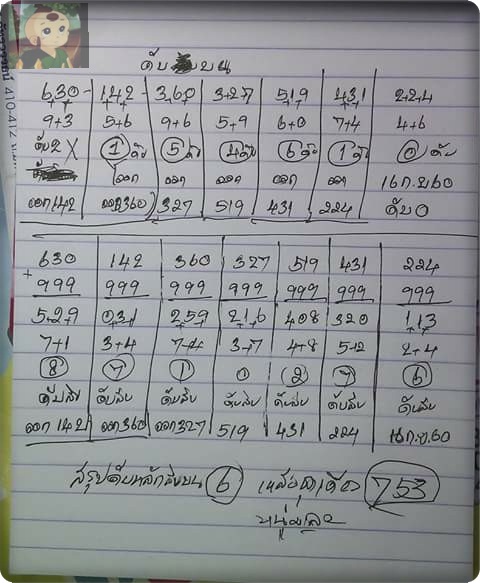 ดับบน
630 - 142 - 360 327 519 431 224
9+3 5+6 9+6 5+9 6+0 7+4 4+6
ดับ2 X 1 ดับ 5 ดับ 4 ดับ 6 ดับ 1 ดับ 0 ดับ
ออก ออก ออก ออก ออก 16 ก.ย 60
ออก 142 ออก 360 327 519 431 224 ดับ 0
630 142 360 327 519 431 224
+ 999 999 999 999 999 999 999
529 031 259 216 408 320 113
7+1 3+4 7-4 3-7 4-8 5-2 2+4
8 7 1 0 2 7 6
ดับสิบ ดับสิบ ดับสิบ ดับสิบ ดับสิบ ดับสิบ ดับสิบ
ออก 142 ออก 360 ออก 327 519 431 224 16 ก.ย. 60
สรุปดับหลักสิบบน 6 เหลือชุดเดียว 753
หนุ่มเลอ